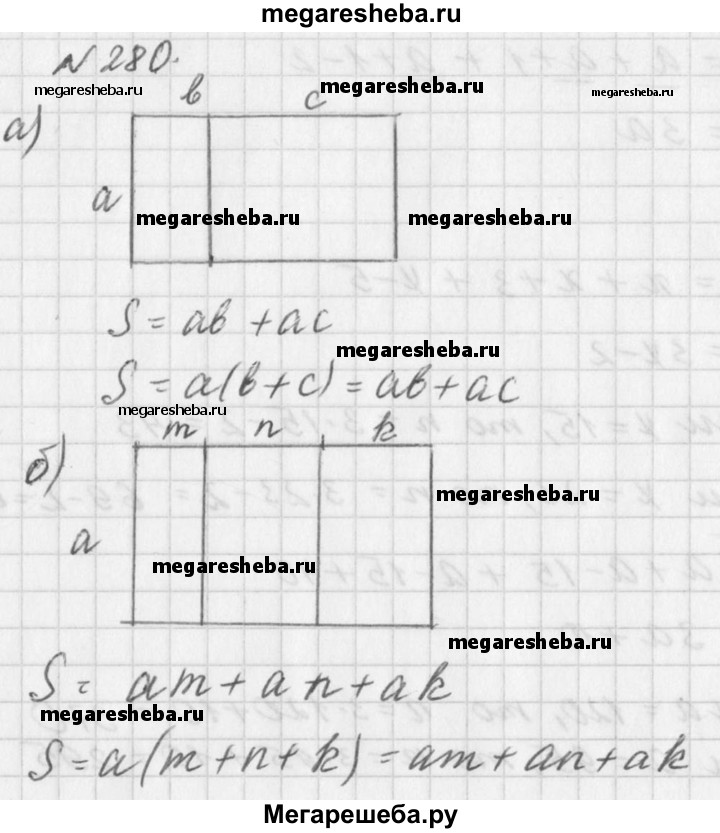 megaresheba.ru
№280.
megaresheba.ru megaresheba.ru megaresheba.ru
в c
а)
a
megaresheba.ru megaresheba.ru
S = aв + ac
megaresheba.ru
S = a(в+c) = aв + ac
megaresheba.ru
m n k
б)
megaresheba.ru
a
megaresheba.ru
megaresheba.ru
S = am + an + ak
megaresheba.ru
S = a(m+n+k) = am + an + ak
Мегарешеба.ру